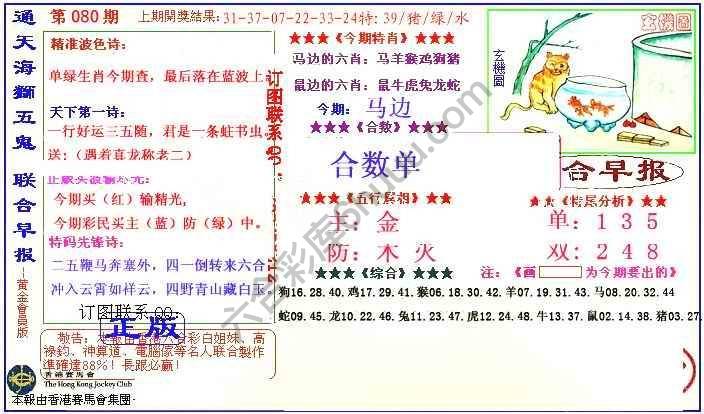 通天海獅五鬼 聯合早报
-黃金會員版
第080期
上期開獎結果:31-37-07-22-33-24特:39/猪/绿/水
精准波色诗:
单绿生肖今期查, 最后落在蓝波上
天下第一诗:
一行好运三五随, 君是一条蛀书虫.
送:(遇着真龙称老二)
今期买(红)输精光,
今期彩民买主(蓝)防(绿)中。
特码先锋诗:
二五鞭马奔塞外, 四一倒转来六合.
冲入云霄如样云, 四野青山藏白玉.
订图联系QQ:
正版
敬告: 本報由香港六合彩白姐妹、高
祿鈞、神算道、電腦傢等名人联合製作
準確達88%! 長跟必贏!
香港賽馬會
The Hong Kong Jockey Club
本報由香港賽馬會集團
订图联系QQ:
★★★《今期特肖》★★★
马边的六肖: 马羊猴鸡狗猪
鼠边的六肖: 鼠牛虎兔龙蛇
今期: 马边
★★★《合数》★★★
合数单
★★★《五行属相》★★★
主: 金
防: 木 火
★★★《综合》★★★
玄機圖
玄機圖
合早报
★★《特尾分析》★★
单: 1 3 5
双: 2 4 8
注:《画 为今期要出的》
狗16.28.40. 鸡17.29.41. 猴06.18.30.42. 羊07.19.31.43. 马08.20.32.44
蛇09.45. 龙10.22.46. 兔11.23.47. 虎12.24.48. 牛13.37. 鼠02.14.38. 猪03.27.